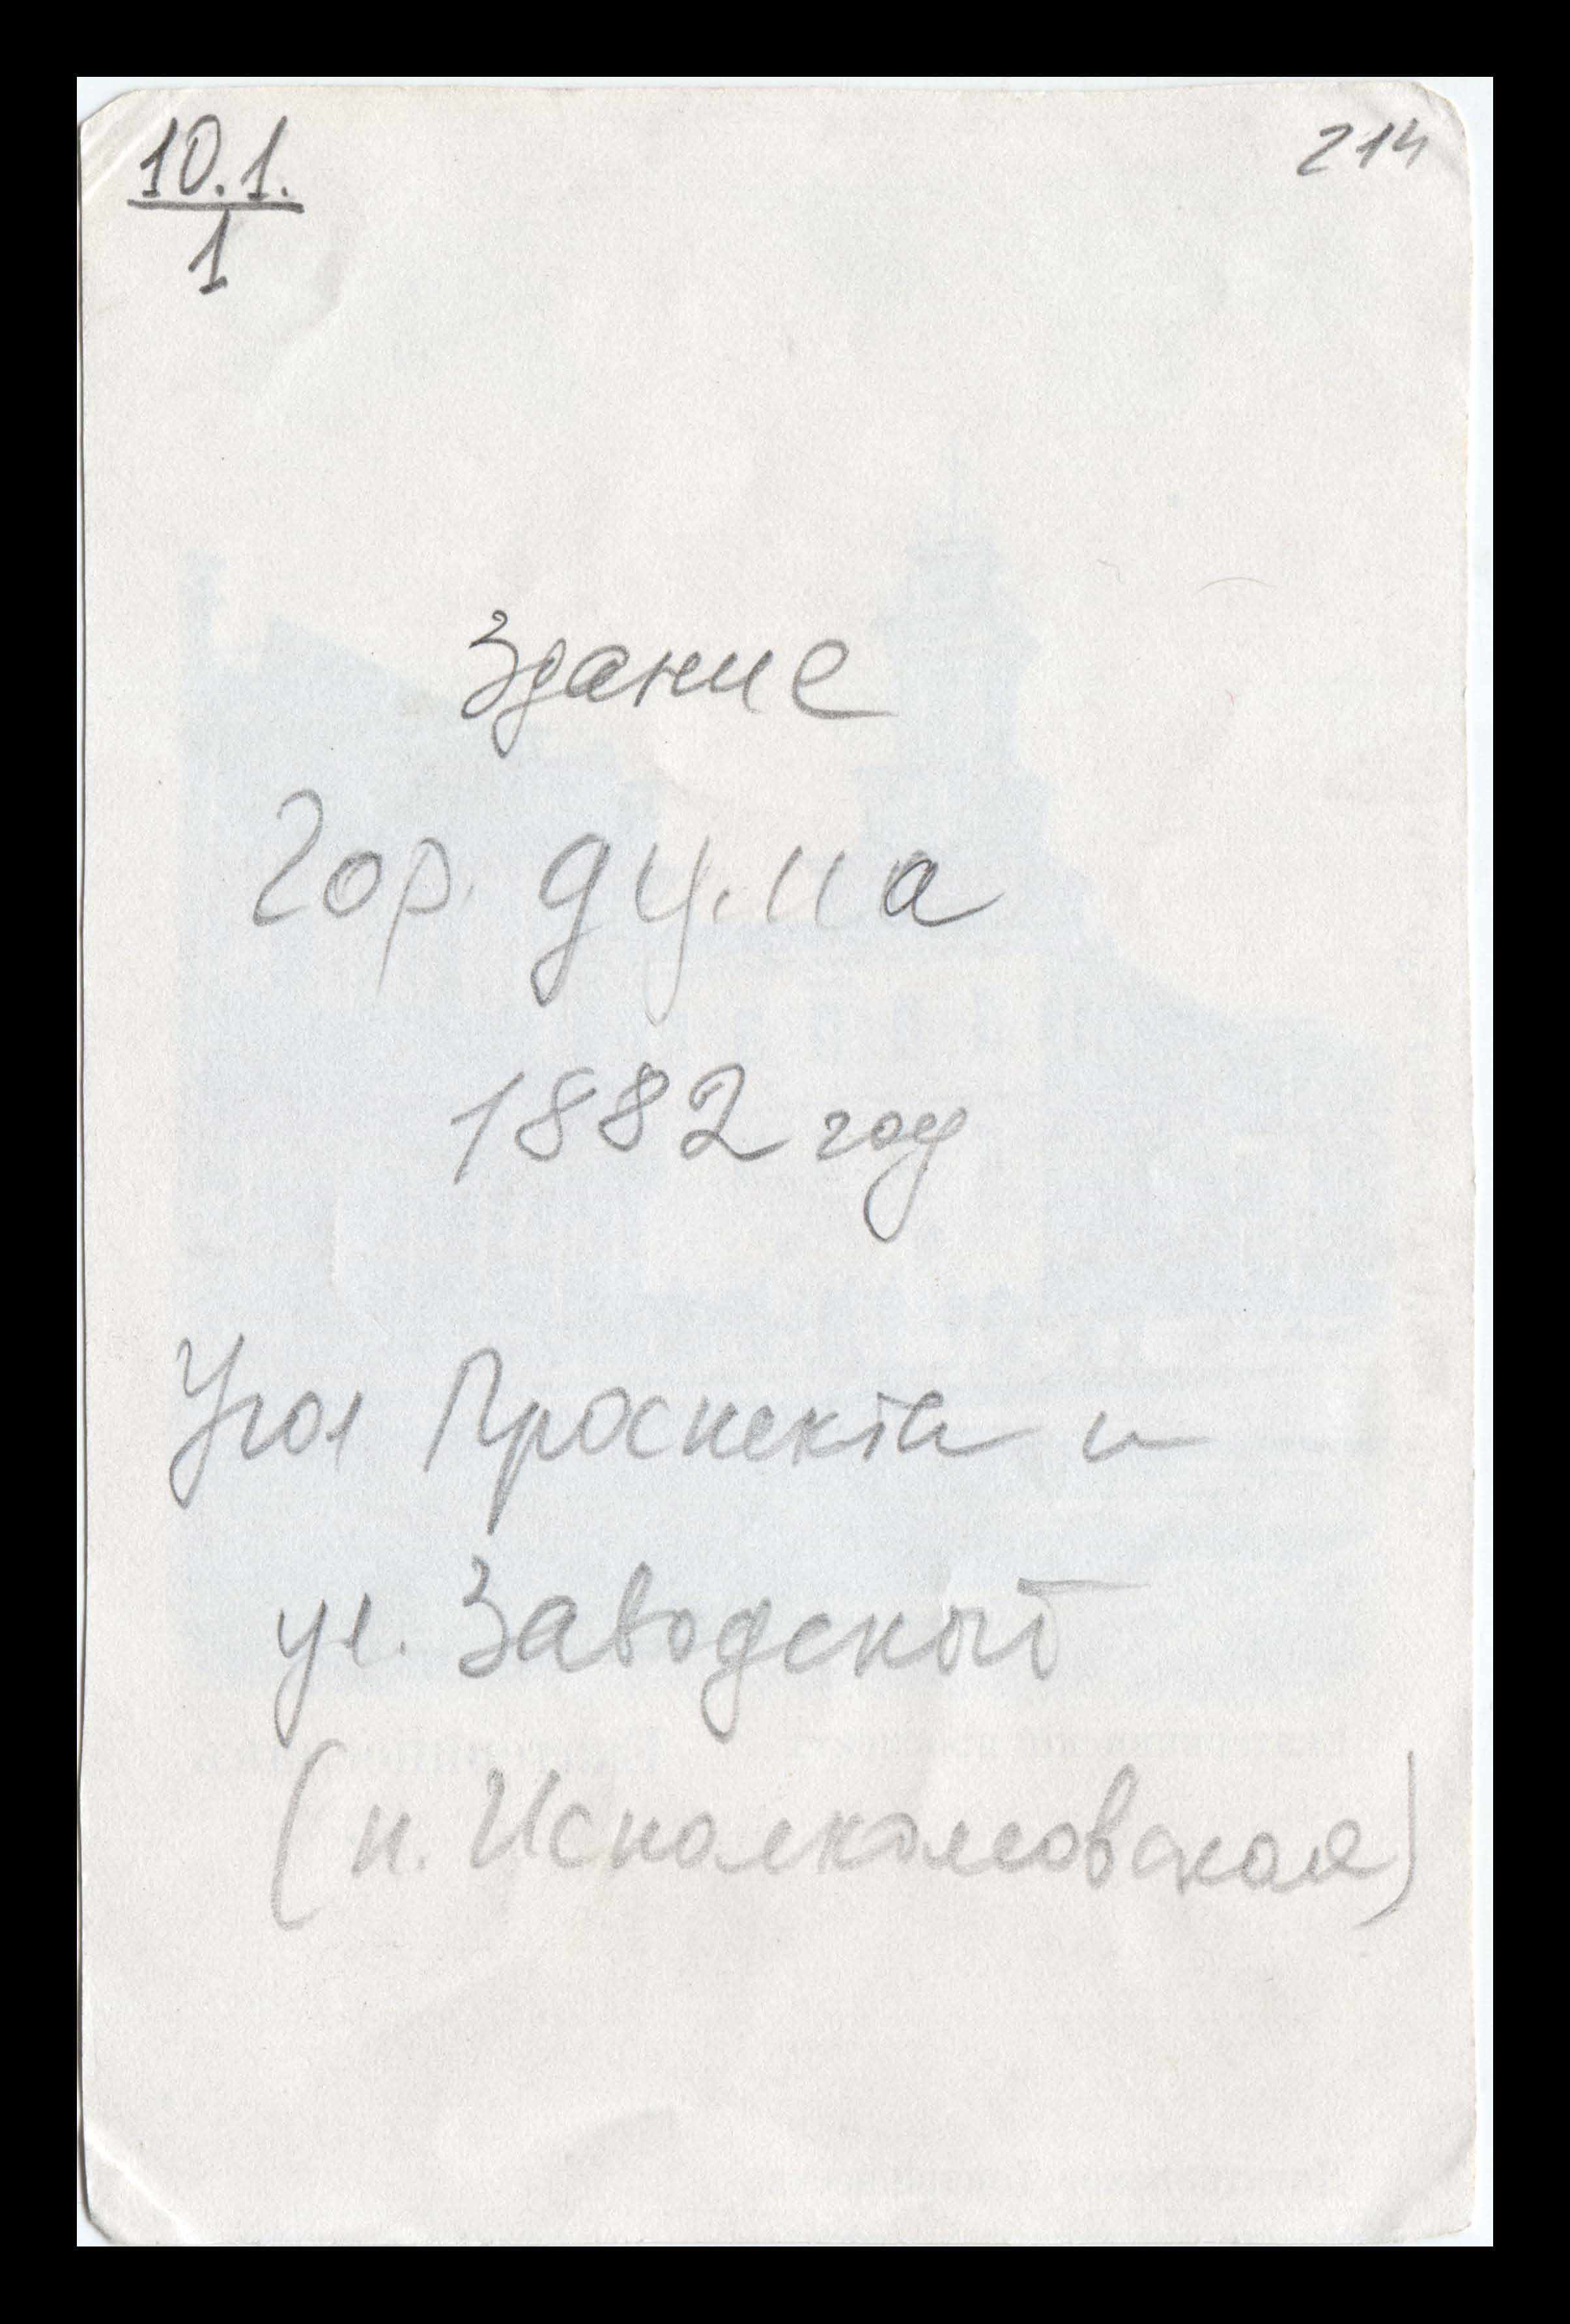 10.1.
1
214
Здание
Гор. дума
1882 год
Угол Проспекта и
ул. Заводской
(н. Исполкомовская)